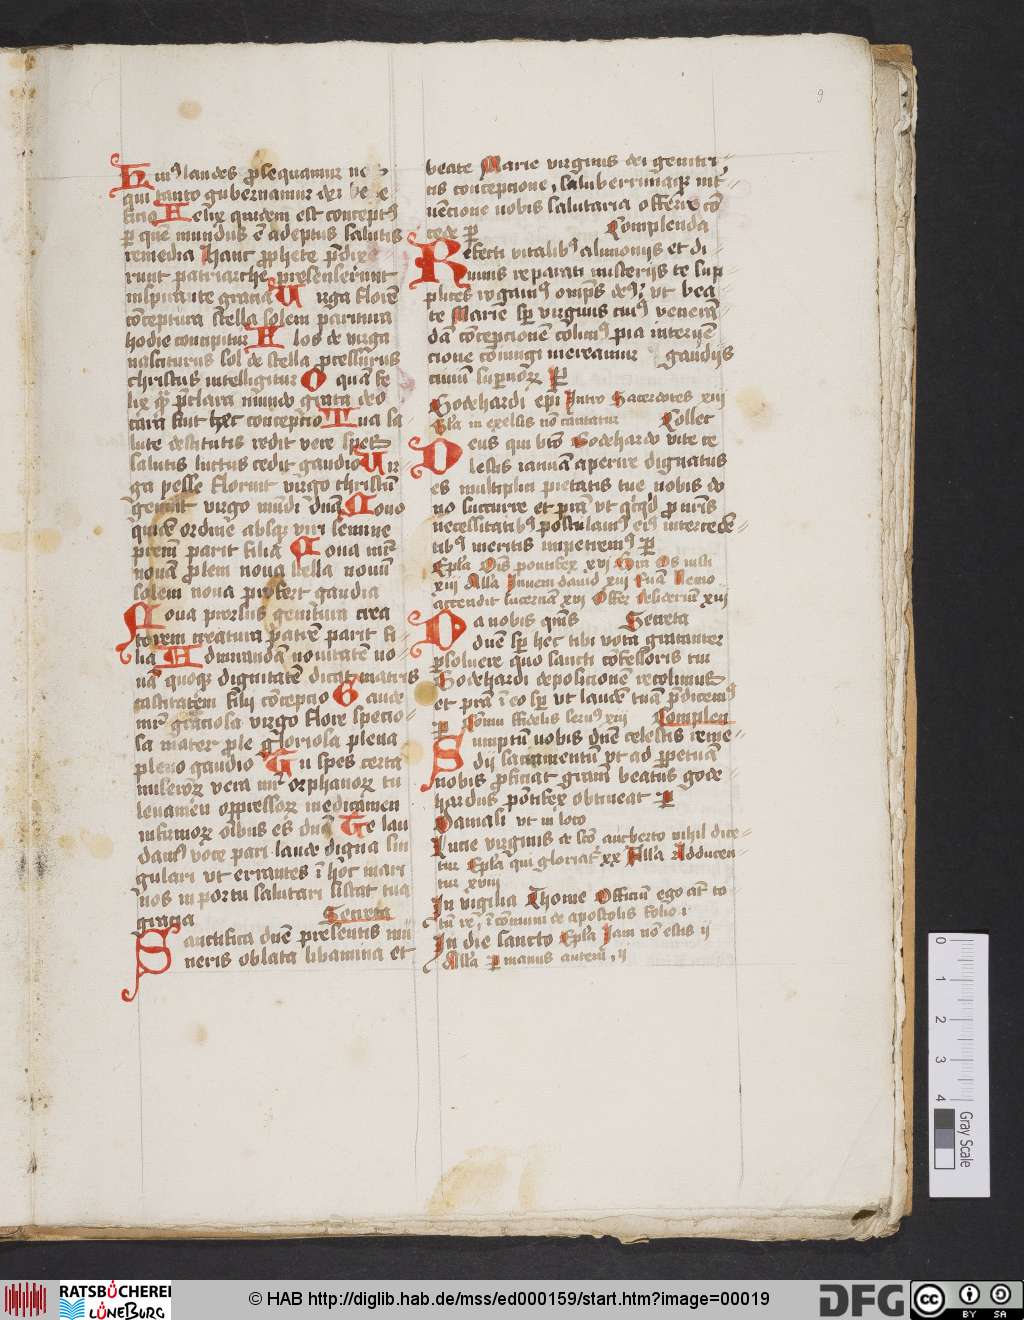 9
Huiꝰ laudes ꝓsequamur
qui tanto gubernamur
ficio Felix quidem est conceptꝰ
ꝑ quē mundus ē adeptus salutis
remedia Hanc ꝓphete
runt patriarche presenserunt
inspirante gracia Uirga florē
cōceptura stella solem paritura
hodie concipitur Flos de virga
nasciturus sol de stella ꝓcessurus
christus intelligitur O quā fe
lix mundo grata deo
cara fuit hec concepcio Tua sa
lute destitutis redit vere spes
salutis luctus cedit gaudio Uir
ga yesse floruit virgo christū
genuit virgo mūdi dnām Nouo
quidē ordine absqꝫ viri semine
parit filia Noua
nouā prolem noua stella nouū
solem noua profert gaudia
Noua prorsus genitura crea
torem creatura patrē parit fi
lia Admirandā nouitatē no
uā quoqꝫ dignitatē dicat matris
castitatem filij concepcio Gaude
graciosa virgo flore specio
sa mater ꝓle gloriosa plena
pleno gaudio Tu spes certa
miseroꝝ vera orphanoꝝ tu
leuamen oppressoꝝ medicamen
infirmoꝝ oībus es Te lau
damꝰ voce pari laude digna sin
gulari vt errantes ī hoc mari
nos in portu salutari sistat tua
gracia Secreta
Sanctifica dnē presentis mu
neris oblata libamina et
beate Marie virginis dei genitri
cis concepcione, saluberrimaqꝫ int
uēcione nobis salutaria offerre cō
cede ꝑ Complenda
Refecti vitalibꝰ alimoniis et di
uinis reparati misterijs te sup
plices rogamꝰ omīps deꝰ, vt bea
te Marie sꝑ virginis cuiꝰ veneran
dā cōcepcionē colimꝰ pia interuē
cione coniungi mereamur gaudijs
ciuiū ꝑ
Godehardi epi Intro Sacerdotes xiij
Gła in exelsis nō cantatur Collec
Deus qui bto Godehardo vite ce
lestis ianuā aperire dignatus
es multiplici pietatis tue nobis do
no succurre et prā vt ꝓ nrīs
necessitatibꝰ postulamꝰ eiꝰ interceden
tibꝰ meritis impetremꝰ ꝑ
Epła pontifex xvj Gra Os iusti
xiij Alła Inueni dauid xiij Nemo
accendit lucernā xvj Offer xvj
Da nobis qms Secreta
duē sꝑ hec tibi vota gratanter
ꝑsoluere quo sancti cōfessoris tui
Godehardi deposicionē recolimus
et prā ī eo sꝑ vt laudē tuā p̄dicemꝰ
ꝑ Comu fidelis seruꝰ xiij Complen
Sumptū nobis dnē celestis reme
dij sacramentū vt ad ꝑpetuā
nobis ꝓficiat gram beatus gode
hardus pōtifex obtineat ꝑ
Damasi vt in loco
Lucie virginis de sco autberto nihil dice
tur Epła qui gloriat xx Alła Adducen
tur xviij
In vigilia Thome Officiū ego aūt to
tū re, ī cōmuni de apostolis folio i
In die sancto Epła Iam nō estis ij
Alła ꝑ manus autem, ij
0
1
2
3
4
Gray Scale
RATSBÜCHEREI
LÜNEBURG
© HAB http://diglib.hab.de/mss/ed000159/start.htm?image=00019
DFG
cc
BY SA